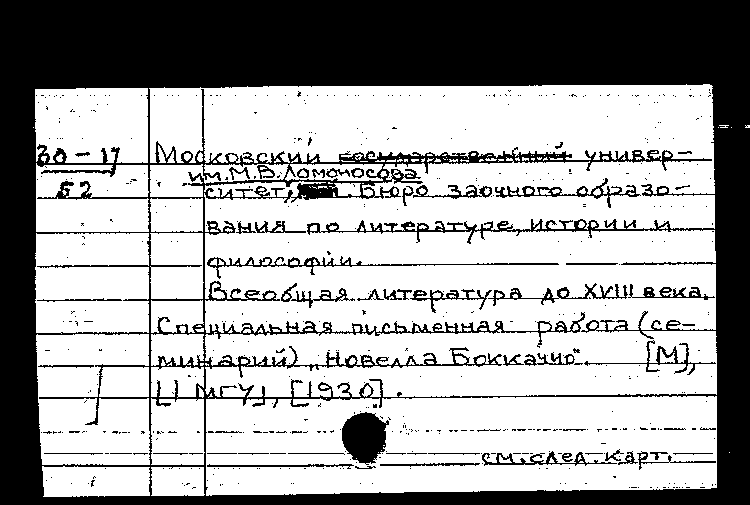 30-17
52
Московский государственный универ-
им. М.В. Ломоносова
ситет, . Бюро заочного образо-
вания по литературе, истории и
философии.
Всеобщая литература до XVIII века.
Специальная письменная работа (се-
минарий) „Новелла Боккачио". [М],
[I МГУ], [1930].
см. след. карт.